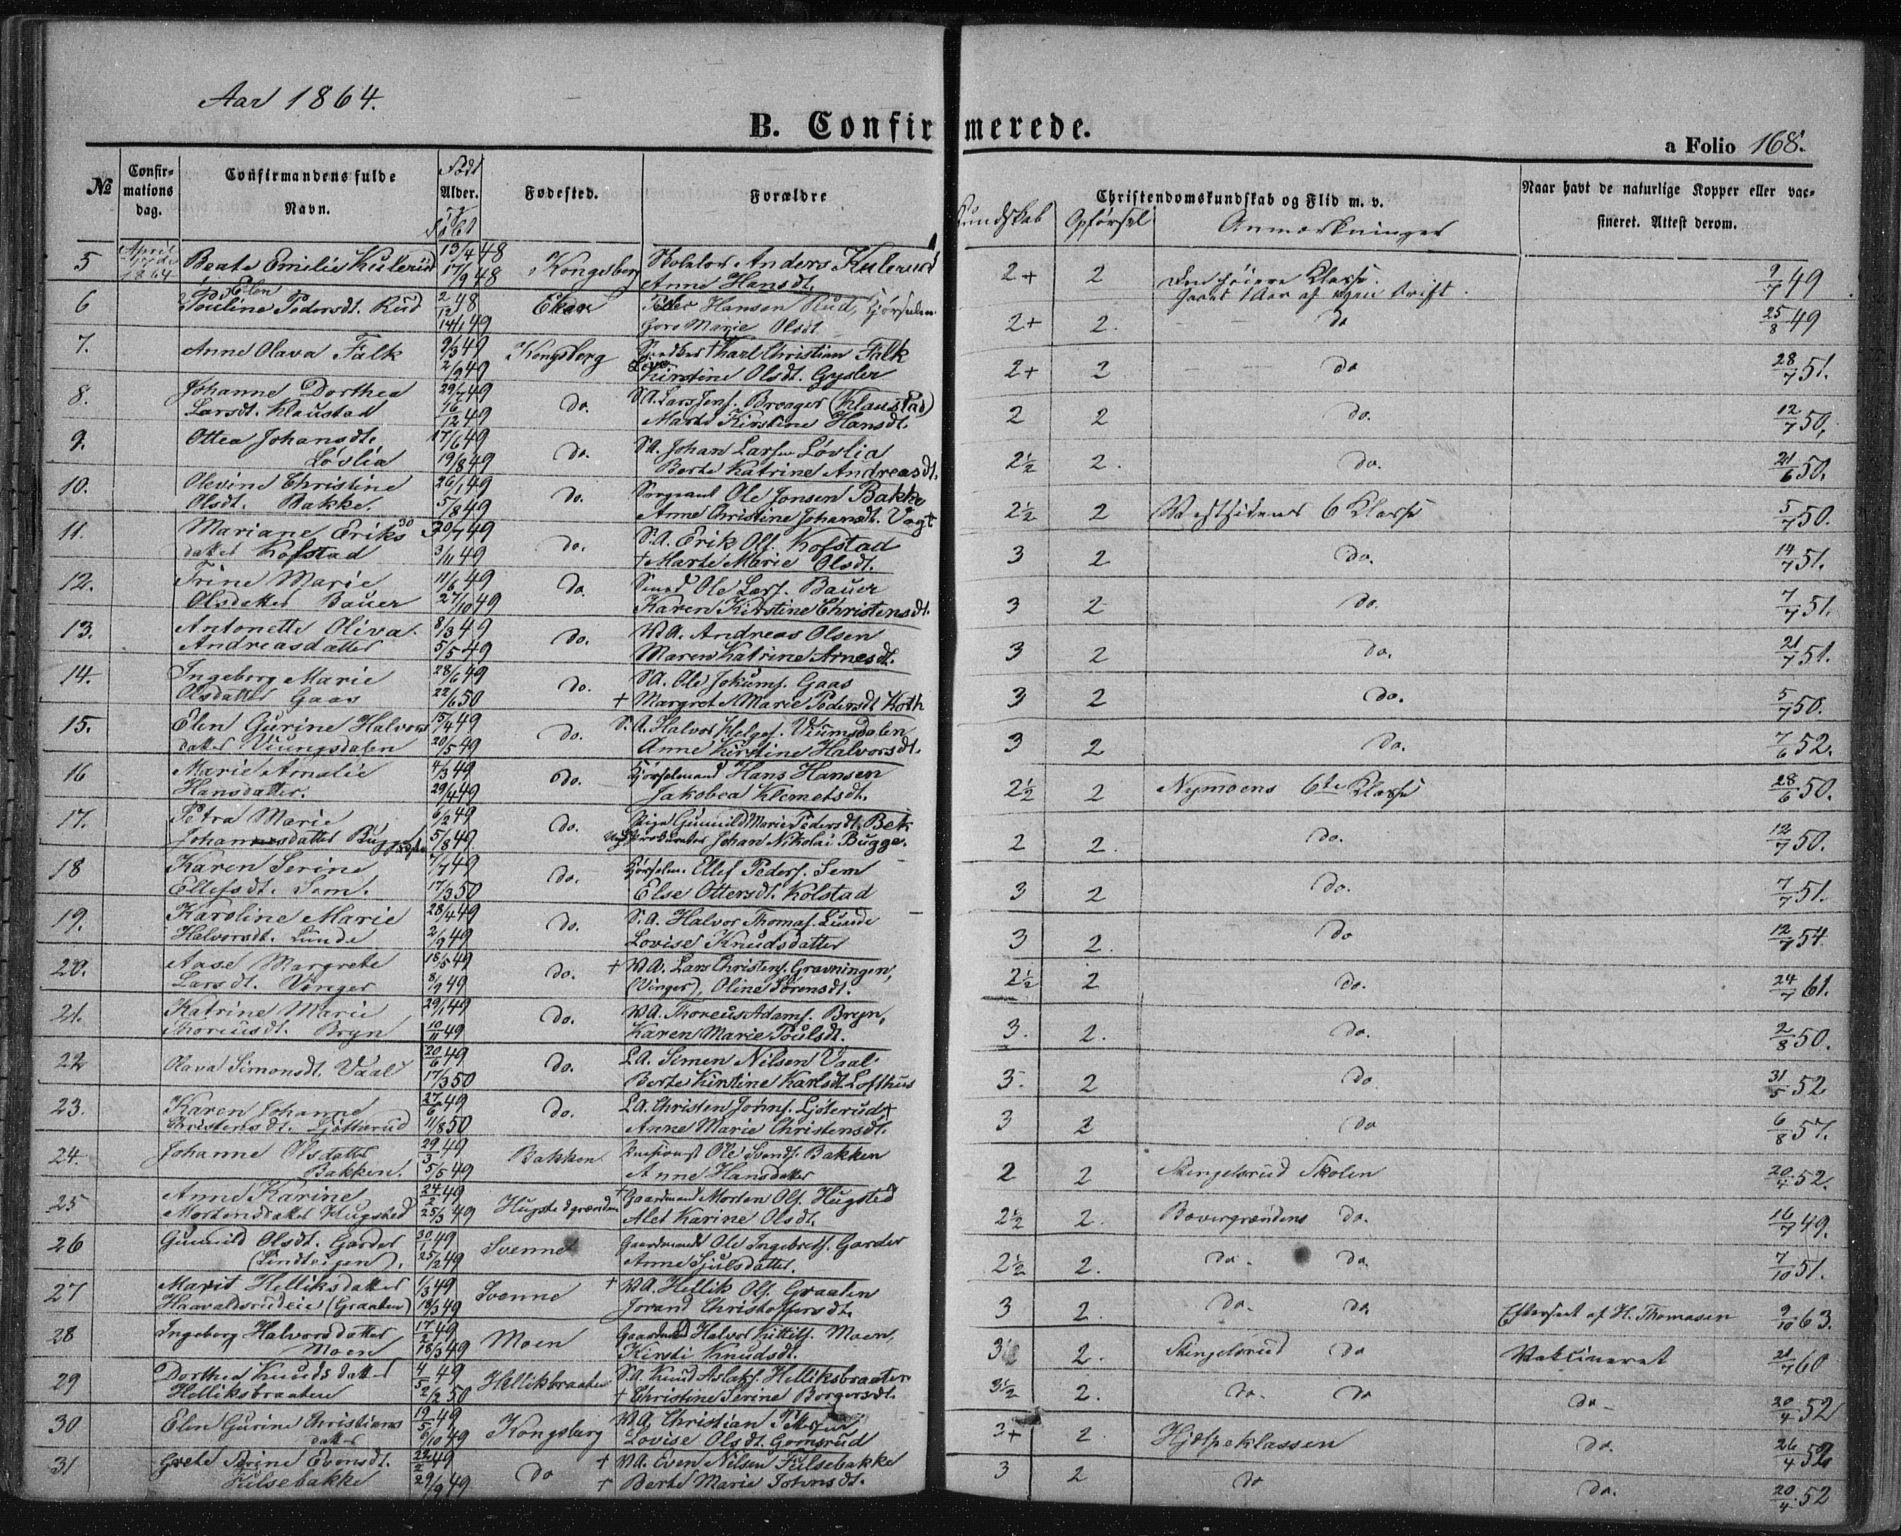 Aar 1864.
B. Confirmerede.
a Folio 168.
№ Confir-mations dag. Confirmandens fulde Navn. Født Alder. Døbt Fødested. Forældre Kundskab Opførsel Christendomskundskab og Flid m. v. Anmærkninger Naar havt de naturlige Kopper eller vac-sineret. Attest derom.
5 April 1864 Beate Emilie Kulerud 13/4 48 17/9 48 Kongsberg Anders Kulerud
Anne Hansdt. 2+ 2 Den høiere Klasse. 9/7 49
6 Elen Pouline Pedersdt. Rud 2/12 48 14/1 49 Eker Peder Hansen Rud, Kjørselm
Goro Marie Olsdt. 2+ 2. do 25/8 49
7. Anne Olava Falk 9/3 49 2/9 49 Kongsberg Karl Christian Falk
Kirstine Olsdt. Gysler 2+ 2 do 28/7 51.
8. Johanne Dorthea 29/7 49 do. S.A. Lars Jens. Breager (Klaustad)
Larsdt. Klaustad 16/12 49 Marte Kirstine Hansdt. 2 2 do. 12/7 50,
9. Ottea Johansdt. 17/6 49 do. S.A. Johan Larsen Løvlia
Løvlia 19/8 49 Berte Katrine Andreasdt. 2½ 2. do. 21/6 50.
10. Olevine Christine 26/1 49 do. Sergeant Ole Jonsen Bakke
Olsdt. Bakke. 5/8 49 Anne Christine Johansdt. Vogt 2½ 2 Vestsidens 6 Klasse 5/7 50.
11. Mariane Eriks 30/7 49 do. S.A. Erik Ols. Kofstad
datter Kofstad 3/11 49 + Marte Marie Olsdt. 3 2 do. 14/7 51.
12. Trine Marie 11/6 49 do. Smed Ole Lars. Bauer
Olsdatter Bauer 27/10 49 Karen Kirstine Christensdt. 3 2 do. 7/7 51.
13. Antonette Oliva 8/3 49 do. V.A. Andreas Olsen
Andreasdatter 5/5 49 Maren Katrine Arnesdt. 3 2 do. 21/7 51.
14. Ingeborg Marie 28/6 49 do. S.A. Ole Jokums. Gaas
Olsdatter Gaas 22/6 50 + Margret Marie Pedersdt. Koth 3 2 do. 5/7 50.
15. Elen Gurine Halvors 15/4 49 do. S.A. Halvor Helges. Viumsdalen
datter Viungsdalen 20/5 49 Anne Kirstine Halvorsdt. 3 2 do. 7/6 52.
16 Marie Amalie 4/3 49 do. Kjørselmand Hans Hansen
Hansdatter. 29/4 49 Jakobea Klemetsdt. 2½ 2 Nymoens 6te Klasse 28/6 50.
17. Petra Marie 6/2 49 do. Pige Gunild Marie Pedersdt. Bek
Johannesdatter Bugge 5/8 49 Johan Nikolai Bugge. 2 2. do. 12/7 50.
18 Karen Serine 7/7 49 do. Kjørselm. Ellef Peders. Sem
Ellefsdt. Sem. 17/3 50 Else Ottersdt. Kolstad 3 2 do. 7/7 51.
19. Karoline Marie 28/4 49 do. S.A. Halvor Thomas. Lunde
Halvorsdt. Lunde 2/9 49 Lovise Knudsdatter 3 2. do 12/7 54
20. Aase Margrete 18/5 49 do. + V.A. Lars Christens. Gravningen,
Larsdt. Vinger 8/9 49 (Vinger), Oline Sørensdt. 2½ 2 do. 24/7 61.
21. Katrine Marie 29/1 49 do. V.A. Thoreus Adams. Bryn,
Thoreusdt. Bryn 10/11 49 Karen Marie Poulsdt. 3. 2. do. 2/8 50.
22 Olava Simonsdt. Vaal 20/6 49 17/3 50 do. L.A. Simen Nilsen Vaal
Berte Kirstine Karlsdt. Lofthus 3. 2 do 31/5 52
23. Karen Johanne 27/6 49 do. L.A. Christen Jørns. Ljøterud +
Christensdt. Ljøtterud 11/8 50 Anne Marie Christensdt. 3 2 do 6/8 57.
24. Johanne Olsdatter 29/3 49 Bakken Ole Svends. Bakken
Bakken. 5/5 49 Anne Hansdatter 2 2 Stengelsrud Skolen 20/4 52.
25 Anne Karine 24/2 49 Hugstedgrænden + Gaardmand Morten Ols. Hugsted
Mortensdatter Hugsted 25/3 49 Alet Karine Olsdt. 2½ 2. Bevergrændens do. 16/7 49.
26 Gunild Olsdt. Garder 30/1 49 Svenne Gaardmand Ole Ingebrets. Garder
(Lindteigen). 25/2 49 Anne Sjulsdatter. 2½ 2. do. do 7/10 51.
27 Marit Helliksdatter 1/3 49 Svenne + V.A. Hellik Ols. Graaten
Haavaldsrudeie (Graaten) 18/3 49 Jorand Christoffersdt. 3 2. do. do Efterseet af H. Thomasen 9/10 63.
28 Ingeborg Halvorsdatter 17/2 49 Moen Gaardmd Halvor Kittils. Moen
Moen 18/3 49 Kirsti Knudsdt. 3 2. Stengelsrud do Vakcineret 21/7 60
29 Dorthea Knudsdatter 4/5 49 Helliksbraaten S.A. Knud Aslaks. Helliksbraaten
Helliksbraaten 2/2 50 + Christine Serine Borgersdt. 3½ 2. do. do do 20/4 52
30 Elen Gurine Christians 19/5 49 Kongsberg V.A. Christian Pettersen
datter 6/10 49 Lovise Olsdt. Gomsrud 3+ 2. Hjelpeklassen do. 26/4 52
31 Grete Serine Evensdt. 22/2 49 do + V.A. Even Nilsen Kilsebakke
Kilsebakke 29/9 49 + Berte Marie Johnsdt. 3 2 do do. 20/4 52